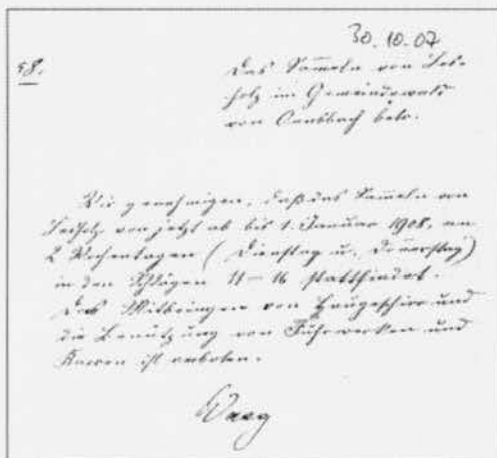 30.10.07
58.
Das Sam̅eln von Lese-
holz im Gemeindewald
von Oensbach betr.
Wir genehmigen, daß das Sam̅eln von
Leseholz von jetzt ab bis 1. Januar 1908, an
2 Wochentagen (Dienstag u. Don̅erstag)
in den Schlägen 11–16 stattfindet.
Das Mitbringen von Haugeschirr und
die Benützung von Fuhrwerken und
Karren ist verboten.